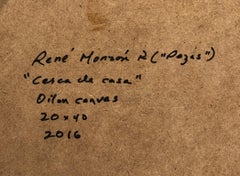 René Monzón R ("Pozas")
"Cerca de casa"
Oil on canvas
20x40
2016